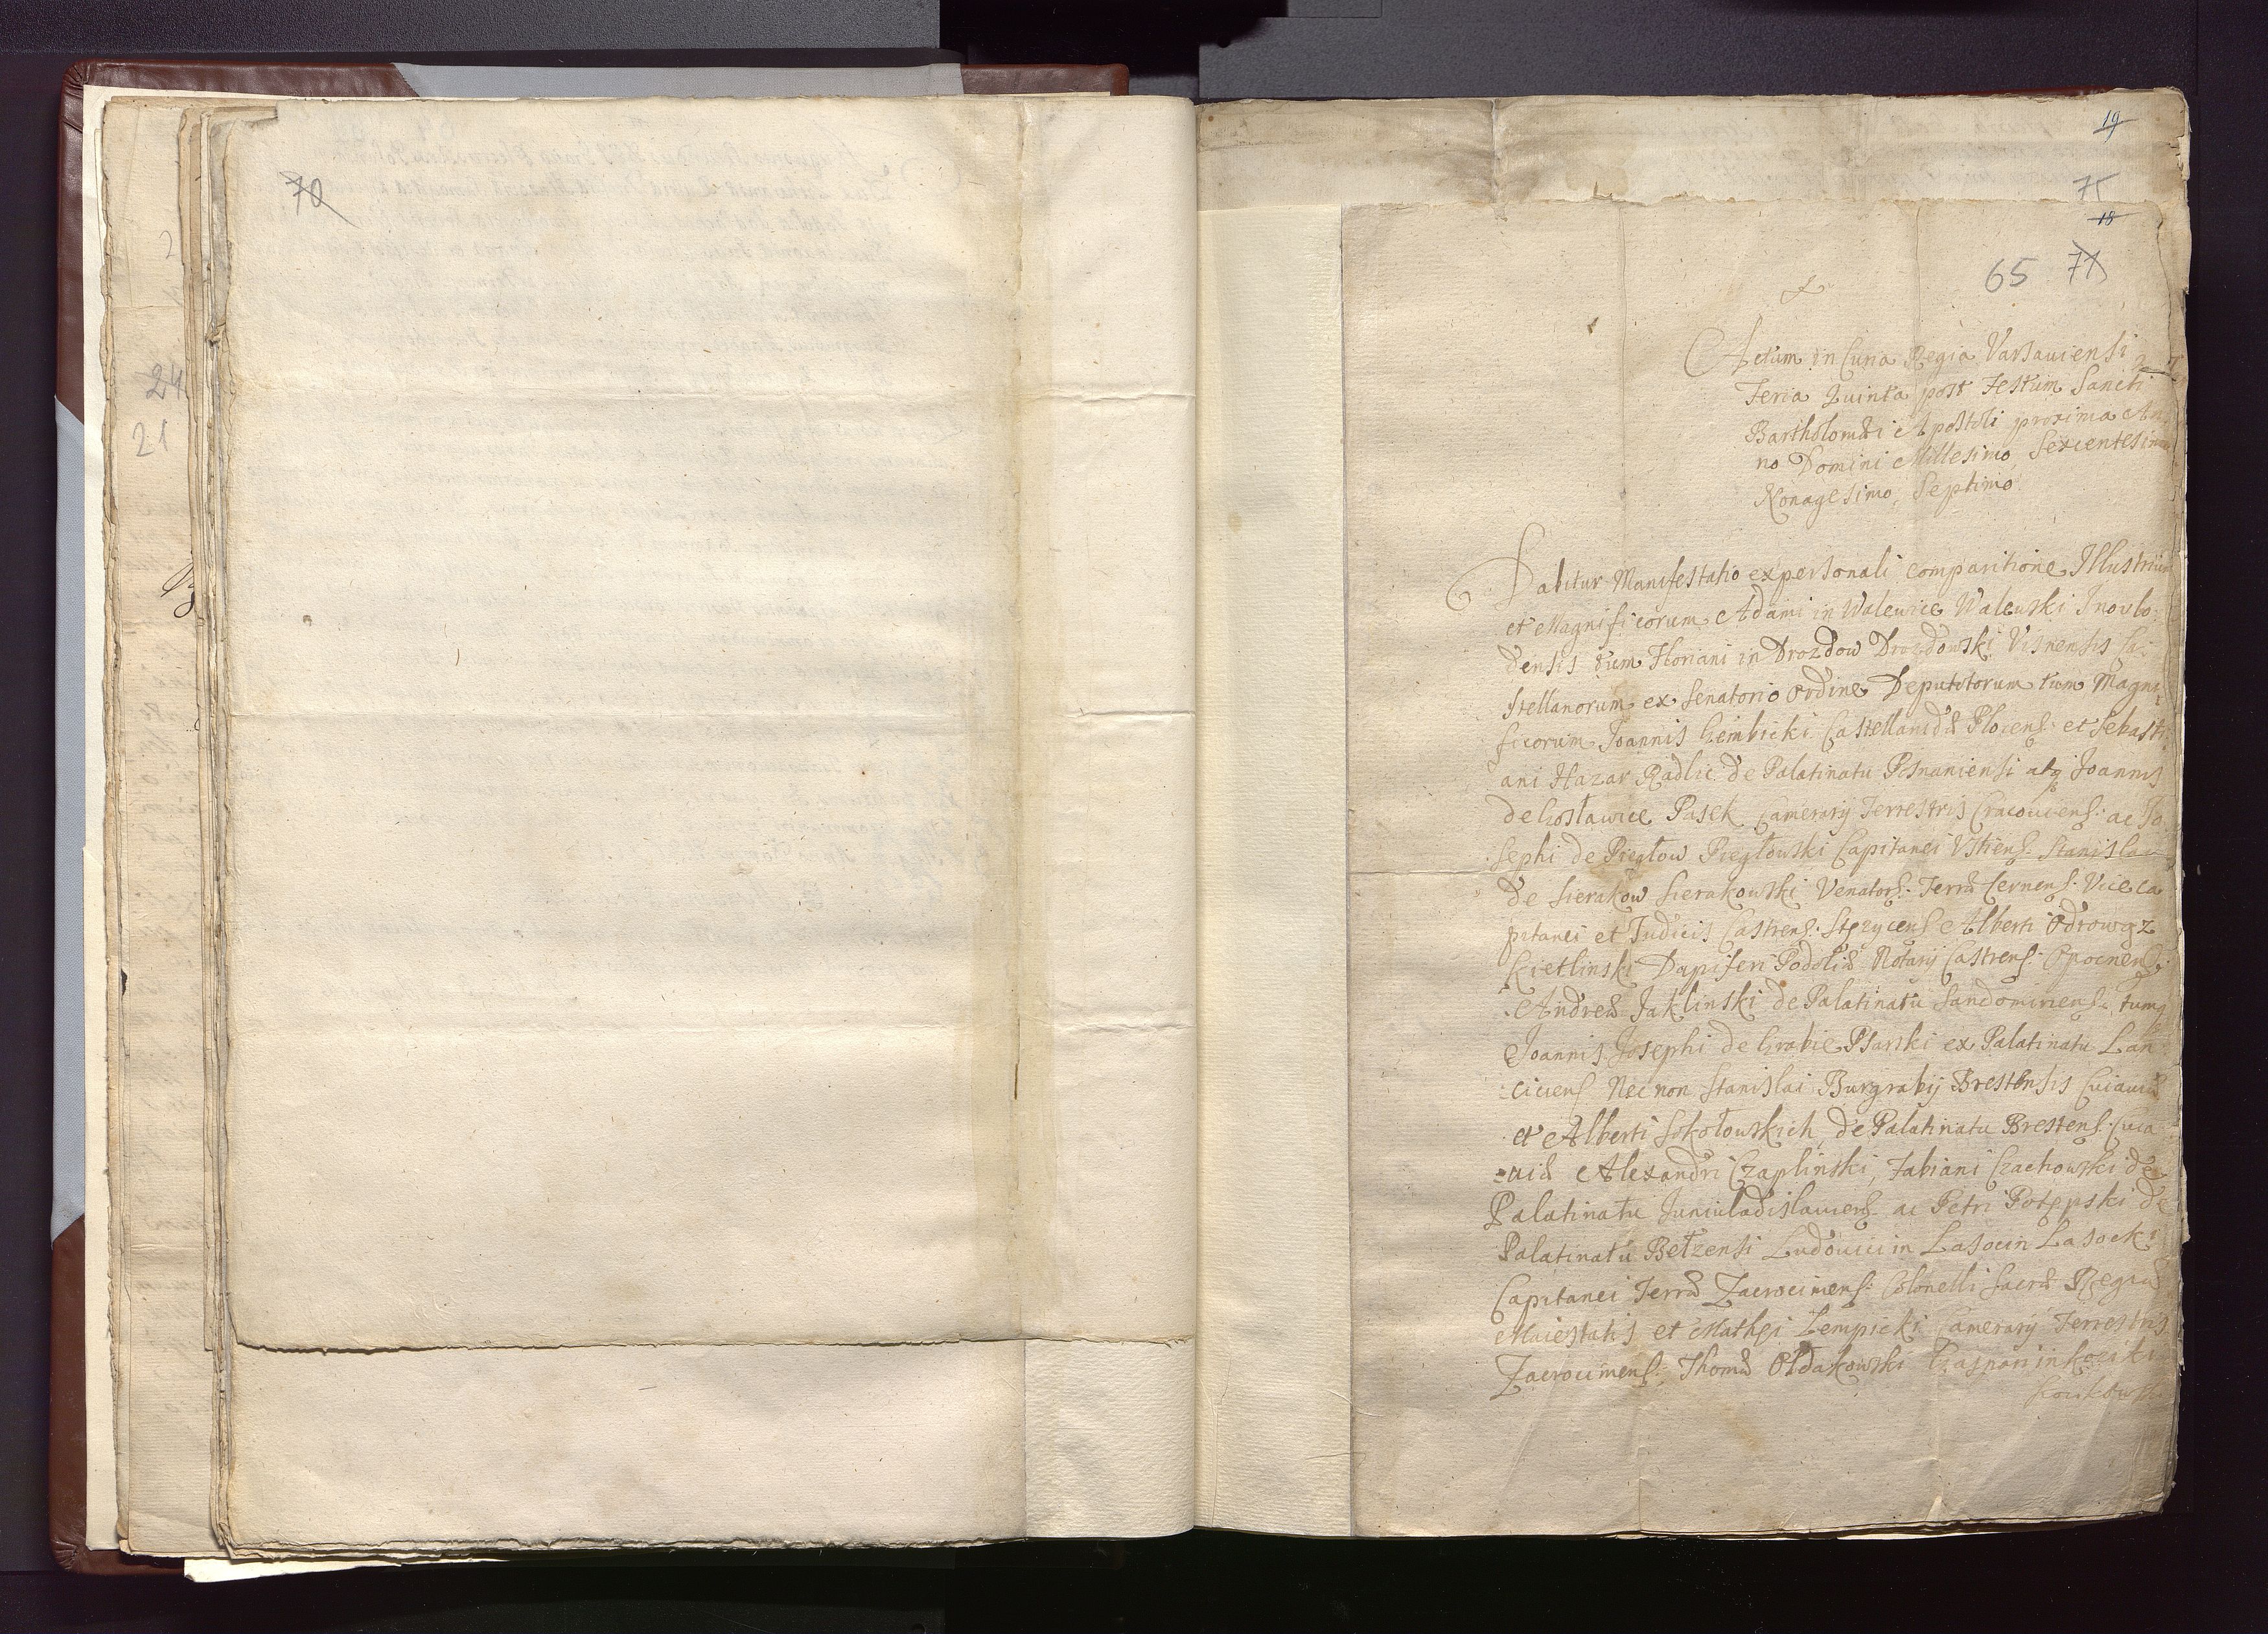 70
24
21
19
75
18
65 71
Actum in Curia Regia Varsauiensi
Feria Quinta post Festum Sancti
Bartholomæi Apostoli proxima An
no Domini Millesimo, Sexcentesimo
Nonagesimo, Septimo
Dabitur Manifestatio ex personali comparitione Illustrium
et Magnificorum Adami in Walewice Walewski Inovlo:
densis tum Floriani in Drozdow Drozdowski Visnensis Ca:
stellanorum ex Senatorio Ordine Deputatorum tum Magni
ficorum Joannis Gembicki Castellanidæ Plocens: et Sebasti
ani Hazar Radlic de Palatinatu Posnaniensi atq Joannis
de Gosławice Pasek Camerarij Terrestris Cracouiens: ac Jo
sephi de Piegłow Piegłowski Capitanei Ustiens: Stanislai
de Sierakow Sierakowski Venatoris Terræ Cernens: Viceca
pitanei et Judicis Castrens: Stężycens Alberti Odrowąz
Kietlinski Dapiferi Podoliæ Notarij Castrens: Opocnens
Andreæ Jaklinski de Palatinatu Sandomiriens: tumq
Joannis Josephi de Grabie Psarski ex Palatinatu Lan
ciciens Nec non Stanislai Burgrabij Brestensis Cuiauiæ
et Alberti Sokołowskich, de Palatinatu Brestens: Cuia
uiæ Alexandri Czaplinski, Fabiani Czachowski de
Palatinatu Juniuladislauiens ac Petri Potępski de
Palatinatu Bełzensi Ludouici in Lasocin Lasocki
Capitanei Terræ Zacrocimens: Colonelli Sacræ Regiæ
Maiestatis et Mathęi Zempicki Camerarij Terrestris
Zacrocimens: Thomæ Ołdakowski